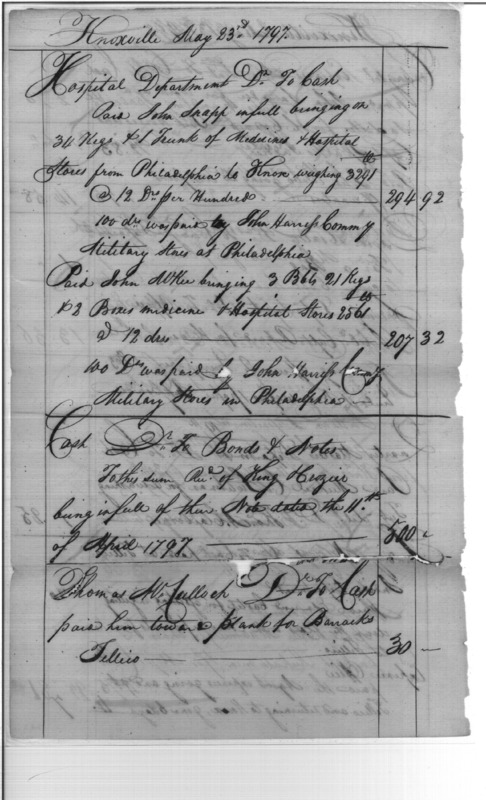 Knoxville May 23rd 1797.
Hospital Department Dr. To Cash
Paid John Snapp in full bringing on
34 Kegs & 1 Trunk of Medicines & Hospital
Stores from Philadelphia to Knox weighing 3291 lb
@ 12 Drs per Hundred 294 92
100 drs was paid by John Harriss Commy
Military Stores at Philadelphia
Paid John McKee bringing 3 Bbls 21 Kegs
& 2 Boxes medicine & Hospital Stores 2561 lb
@ 12 drs 207 32
100 Drs was paid by John Harriss Commy
Military Stores in Philadelphia
Cash Dr. To Bonds & Notes
To this sum Recd. of King & Crozier
being in full of their Note dated the 11th.
of April 1797. 500 —
Thomas McCulloch Dr To Cash
paid him toward plank for Barracks
Tellico 30 —